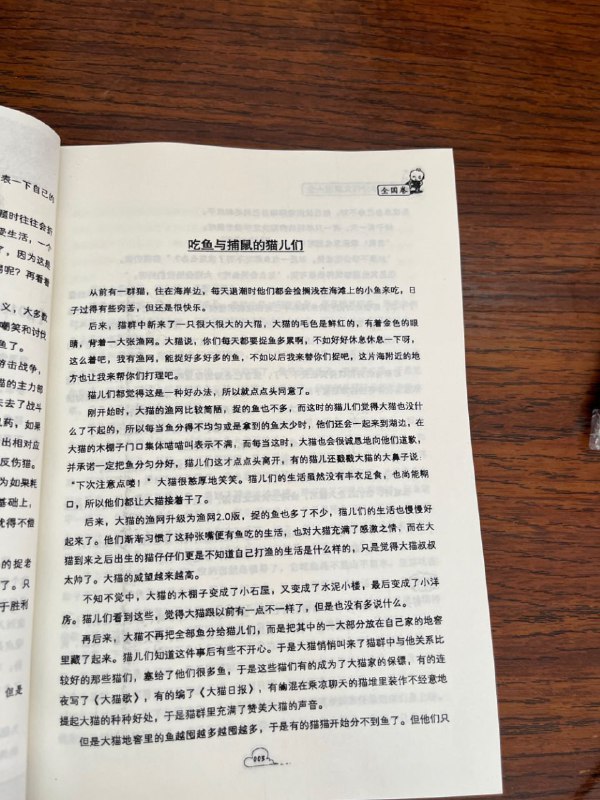 表一下自己的
题时往往会折
受生活，一个
了，因为这是
易呢？再看看
义，大多数
嘲笑和讨伐
鱼了。
游击战争，
猫的主力部
失去了战斗
包药，如果
出相对应
反伤猫。
为如果耗
基础上，
就得不偿
的捉老
了。只
于胜利
但是
全国卷
吃鱼与捕鼠的猫儿们
从前有一群猫，住在海岸边，每天退潮时他们都会捡搁浅在海滩上的小鱼来吃，日
子过得有些穷苦，但还是很快乐。
后来，猫群中新来了一只很大很大的大猫，大猫的毛色是鲜红的，有着金色的眼
睛，背着一大张渔网。大猫说，你们每天都要捉鱼多累啊，不如好好休息休息一下呀，
这么着吧，我有渔网，能捉好多好多的鱼，不如以后我来替你们捉吧，这片海附近的地
方也让我来帮你们打理吧。
猫儿们都觉得这是一种好办法，所以就点点头同意了。
刚开始时，大猫的渔网比较简陋，捉的鱼也不多，而这时的猫儿们觉得大猫也没什
么了不起的，所以每当鱼分得不均匀或是拿到的鱼太少时，他们还会一起来到湖边，在
大猫的木棚子门口集体喵喵叫表示不满，而每当这时，大猫也会很诚恳地向他们道歉，
并承诺一定把鱼匀分好，猫儿们这才点点头离开，有的猫儿还戳戳大猫的大鼻子说：
“下次注意点喽！”大猫很憨厚地笑笑。猫儿们的生活虽然没有丰衣足食，也尚能糊
口，所以他们都让大猫接着干了。
后来，大猫的渔网升级为渔网2.0版，捉的鱼也多了不少，猫儿们的生活也慢慢好
起来了。他们渐渐习惯了这种张嘴便有鱼吃的生活，也对大猫充满了感激之情，而在大
猫到来之后出生的猫仔仔们更是不知道自己打渔的生活是什么样的，只是觉得大猫叔叔
太帅了。大猫的威望越来越高。
不知不觉中，大猫的木棚子变成了小石屋，又变成了水泥小楼，最后变成了小洋
房。猫儿们看到这些，觉得大猫跟以前有一点不一样了，但是也没有多说什么。
再后来，大猫不再把全部鱼分给猫儿们，而是把其中的一大部分放在自己家的地窖
里藏了起来。猫儿们知道这件事后有些不开心。于是大猫悄悄叫来了猫群中与他关系比
较好的那些猫们，塞给了他们很多鱼，于是这些猫们有的成为了大猫家的保镖，有的连
夜写了《大猫歌》，有的编了《大猫日报》，有的混在乘凉聊天的猫堆里装作不经意地
提起大猫的种种好处，于是猫群里充满了赞美大猫的声音。
但是大猫地窖里的鱼越囤越多越囤越多，于是有的猫猫开始分不到鱼了。但他们只
003